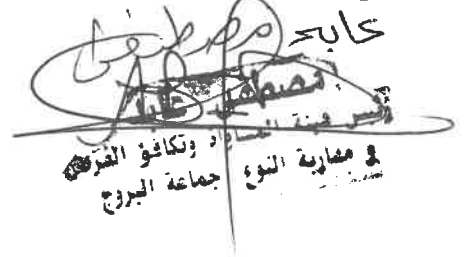 مصطفى عابد
مصطفى عابد
رئيس هيئة المساواة وتكافؤ الفرص
و مقاربة النوع جماعة البروج